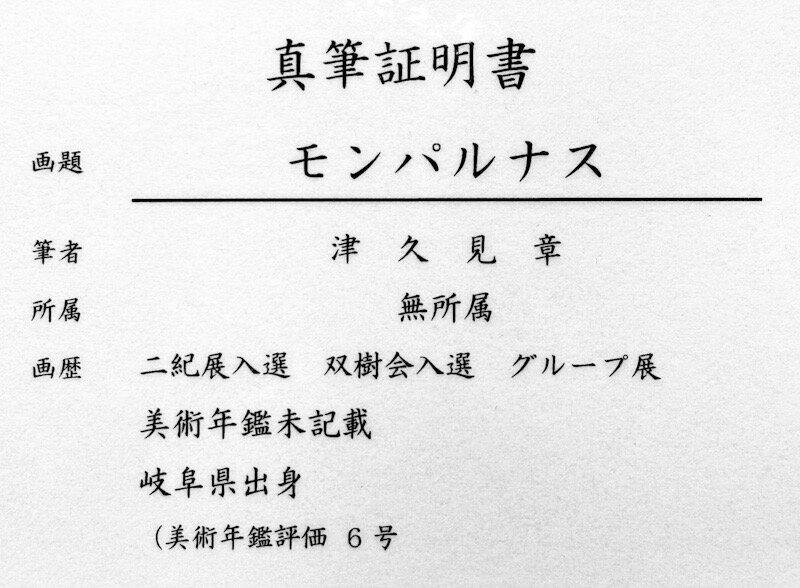 真筆証明書
画題 モンパルナス
筆者 津久見章
所属 無所属
画歴 二紀展入選 双樹会入選 グループ展
美術年鑑未記載
岐阜県出身
(美術年鑑評価 6号